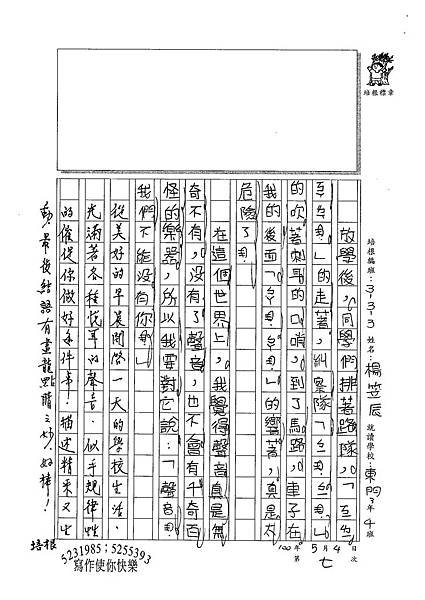 培根標章
培根編班：3,3-3 姓名：楊笠辰 就讀學校：東門3年4班
放學後，同學們排著路隊，「ㄉㄉ
的走著，糾察隊
的吹著刺耳的口哨，到了馬路，車子在
我的後面「ㄅㄚ！ㄅㄚ！」的響著，真是太
危險了！
在這個世界上，我覺得聲音真是無
奇不有，沒有了聲音，也不會有千奇百
怪的樂器，所以我要對它說：「聲音！
我們不能沒有你！」
從美好的早晨開啟一天的學校生活，
充滿著各種悅耳的聲音，似乎規律性
的催促你做好每件事！描述精采又生
動，最後結語有畫龍點睛之妙，好棒！
100年5月4日
第七次
培根
5231985；5255393
寫作使你快樂